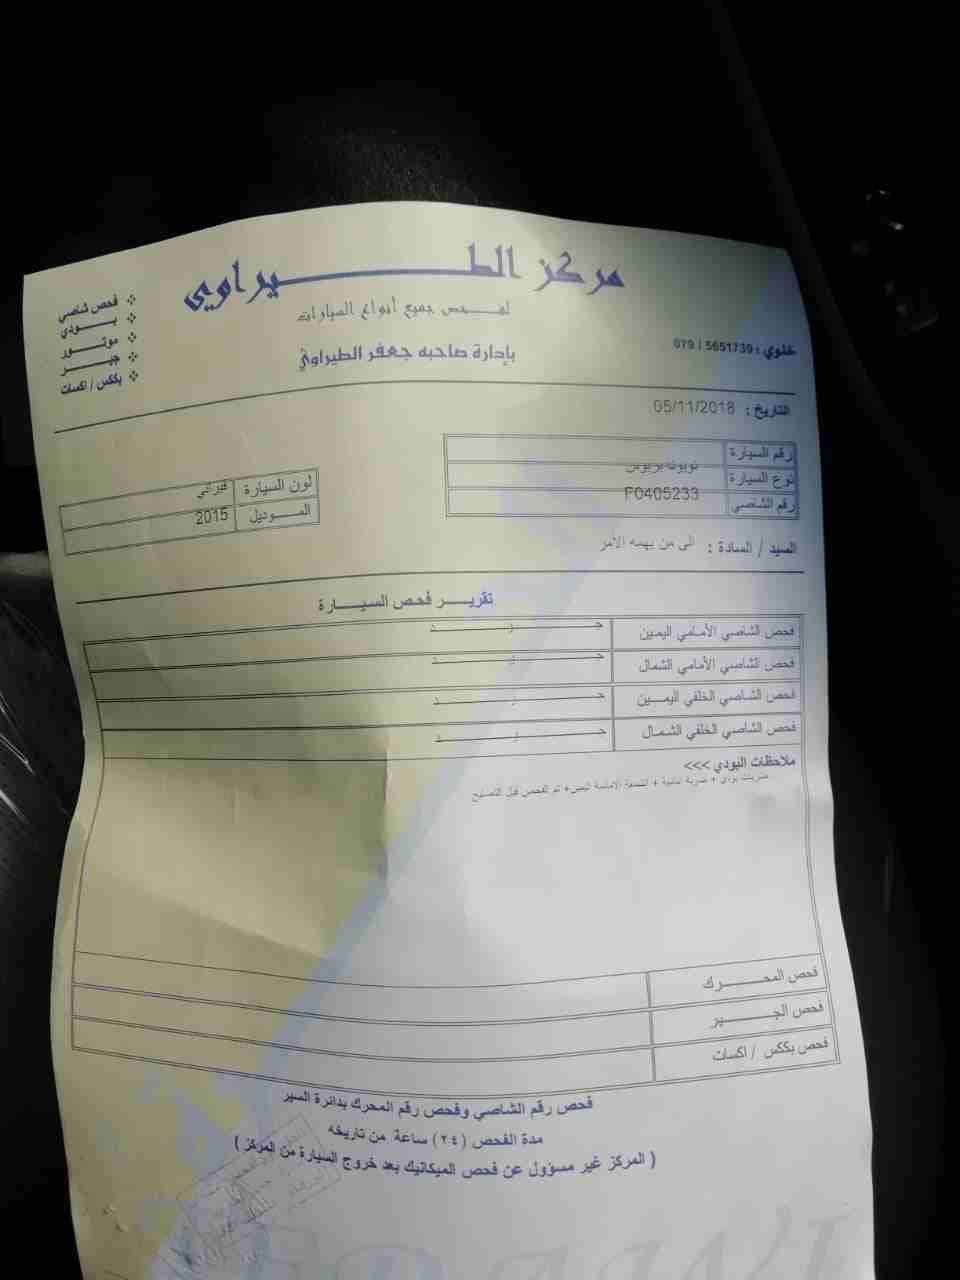 مركز الطـيراوي
لفحص جميع أنواع السيارات
بإدارة صاحبه جعفر الطيراوي
خلوي : 5651739 / 079
❖ فحص شاصي
❖ بـودي
❖ موتـور
❖ جيـر
❖ بككس / اكسات
التاريخ : 05/11/2018
رقم السيارة
نوع السيارة تويوتا بريوس
رقم الشاصي F0405233
لون السيارة فيراني
الموديل 2015
السيد / السادة : الى من يهمه الأمر
تقريـر فحص السيـارة
فحص الشاصي الأمامي اليمين جـيـد
فحص الشاصي الأمامي الشمال جـيـد
فحص الشاصي الخلفي اليمـين جـيـد
فحص الشاصي الخلفي الشمـال جـيـد
ملاحظات البودي >>>
ضربات بودي + ضربة امامية + الشمعة الامامية اليمين+ تم الفحص قبل التصليح
فحص المحـرك
فحص الجـير
فحص بككس / اكسات
فحص رقم الشاصي وفحص رقم المحرك بدائرة السير
مدة الفحص (٢٤) ساعة من تاريخه
( المركز غير مسؤول عن فحص الميكانيك بعد خروج السيارة من المركز )